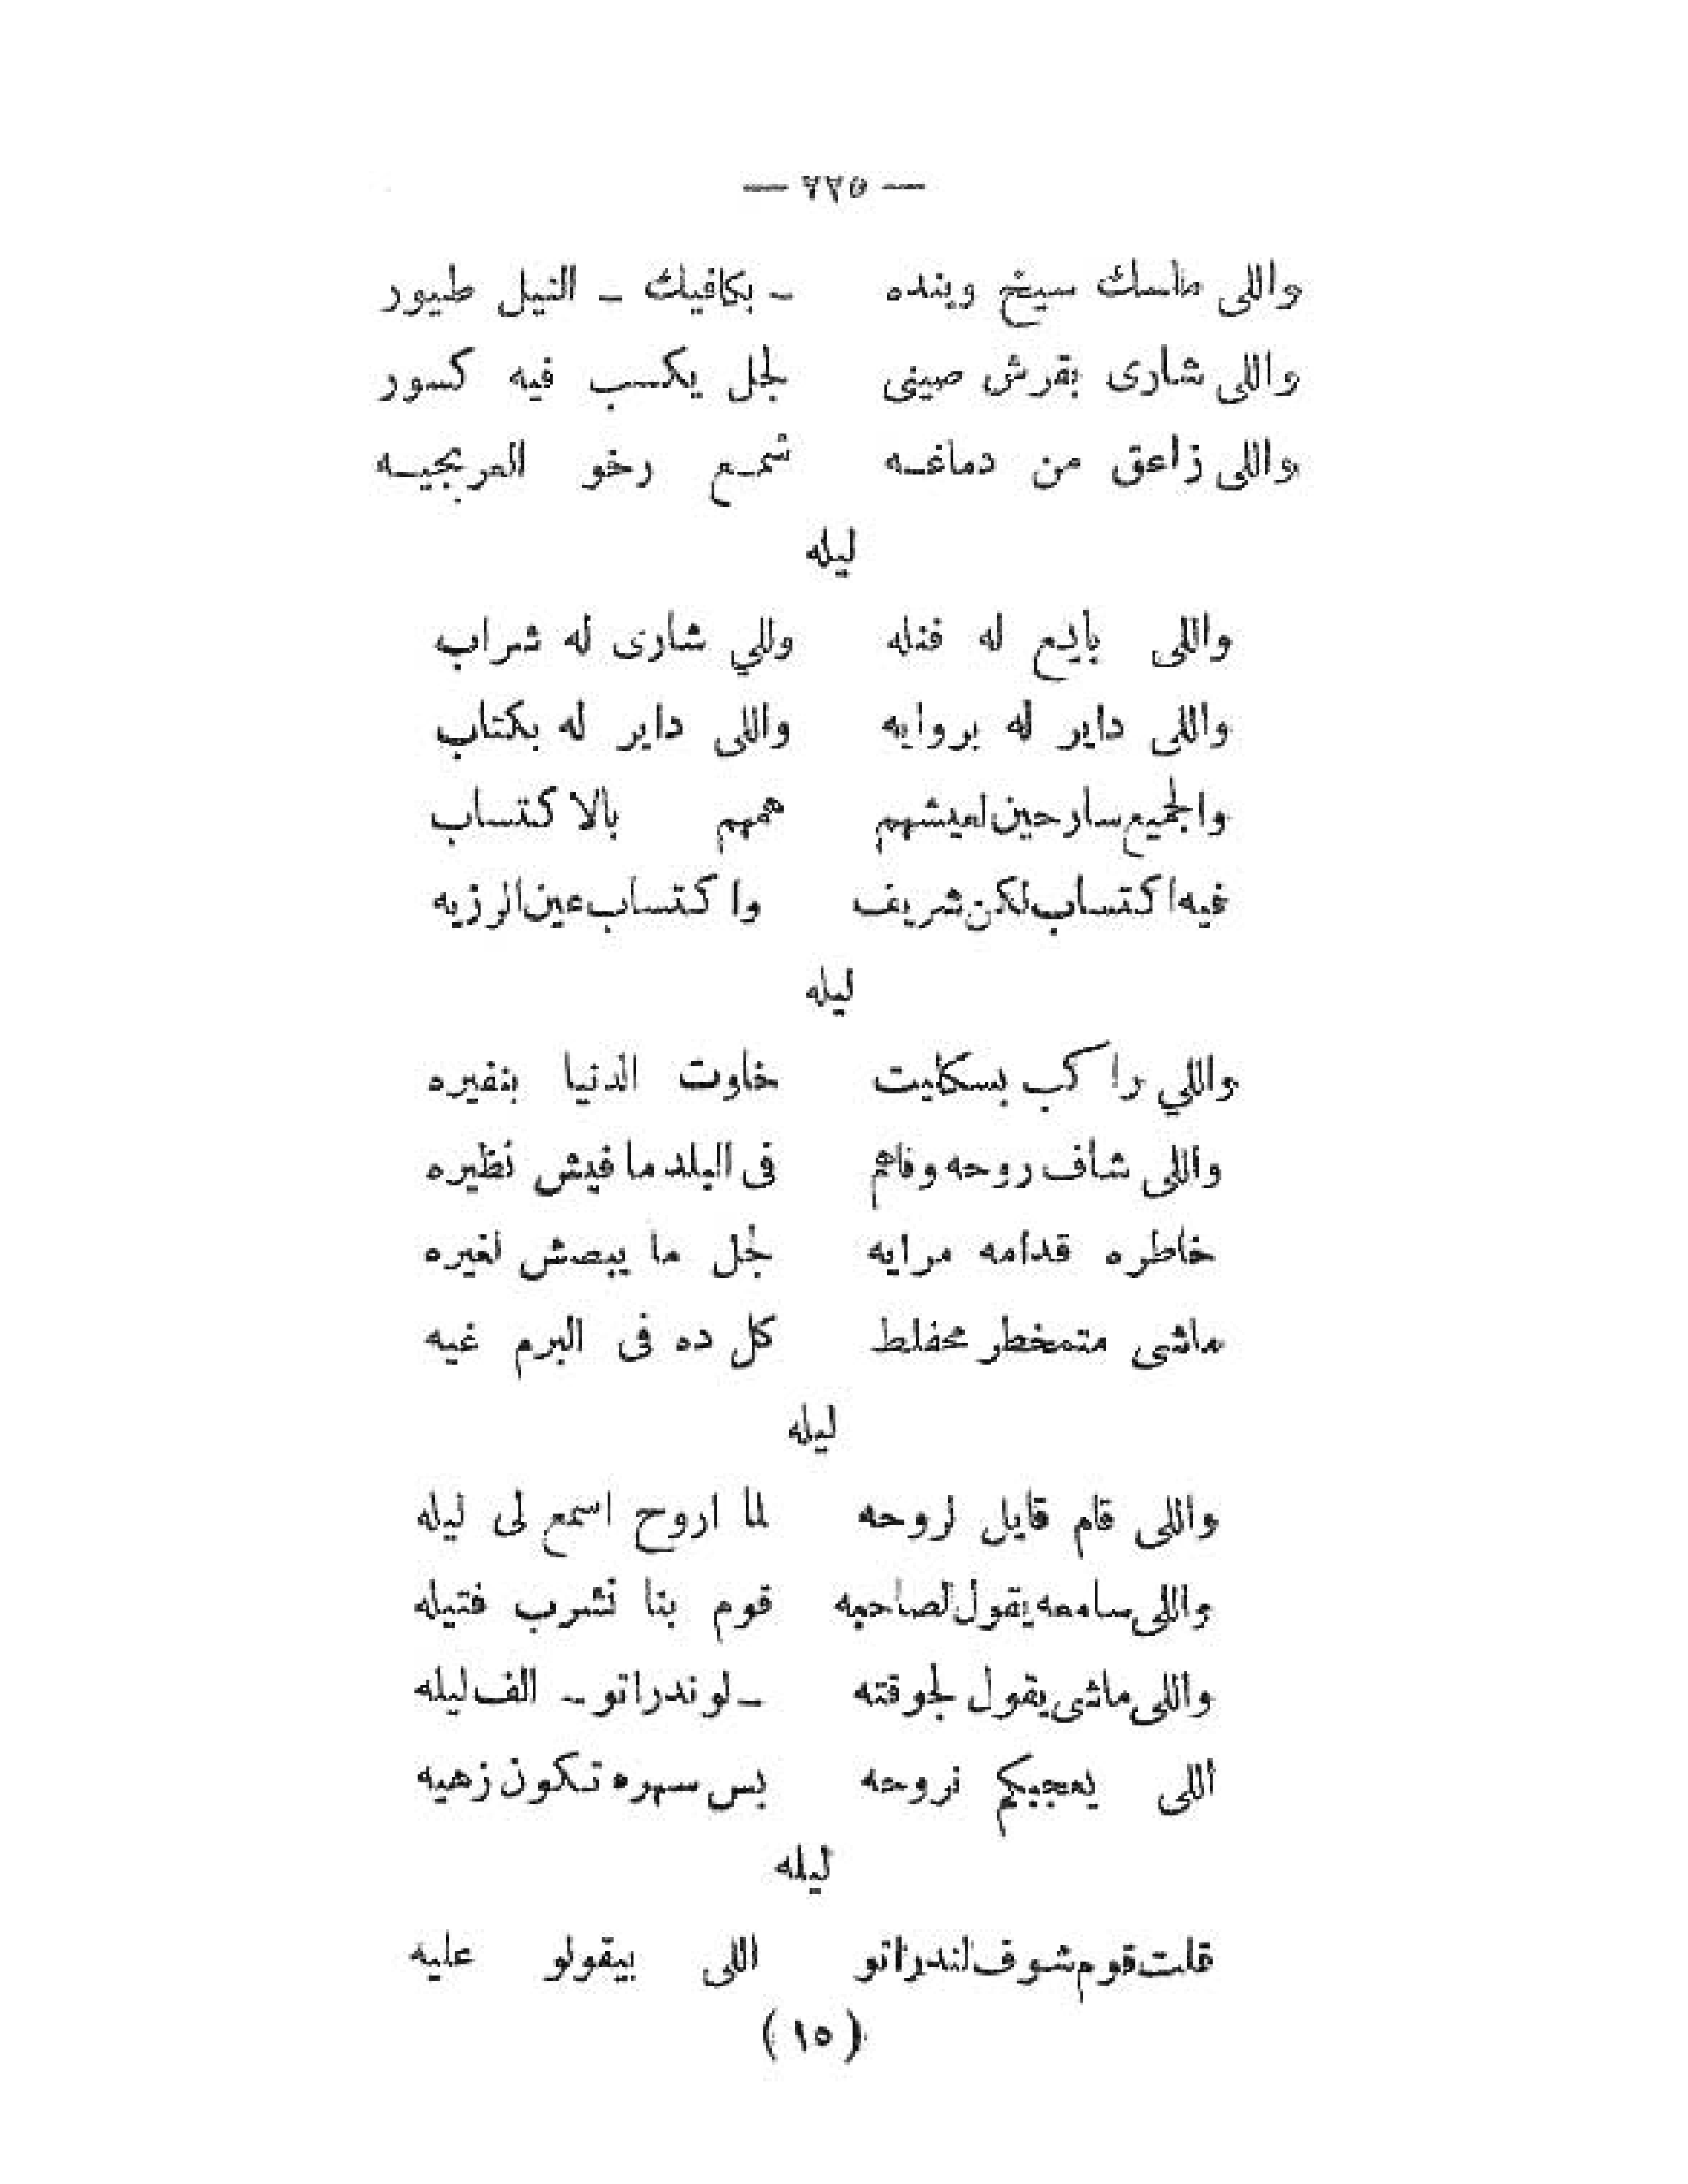 — ٢٢٥ —
واللى ماسك سيخ وينده ـ بكافيك ـ النيل طيور
واللى شارى بقرش صينى لجل يكسب فيه كسور
واللى زاعق من دماغـه شمـع رخو العربجيـه
ليله
واللى بايع له فنله وللي شارى له شراب
واللى داير له بروايه واللى داير له بكتاب
والجميع سارحين لعيشهم همهم بالاكتساب
فيه اكتساب لكن شريف واكتساب عين الرزيه
ليله
واللي راكب بسكليت خاوت الدنيا بنفيره
واللى شاف روحه وفاهم فى البلد مافيش نظيره
خاطره قدامه مرايه لجل ما يبصش لغيره
ماشى متمخطر محفلط كل ده فى البرم غيه
ليله
واللى قام قايل لروحه لما اروح اسمع لى ليله
واللى سامعه يقول لصاحبه قوم بنا نشرب فتيله
واللى ماشى يقول لجوقته ـ لوندراتو ـ الف ليله
اللى يعجبكم نروحه بس سهره تكون زهيه
ليله
قلت قوم شوف لندراتو اللى بيقولو عليه
( ١٥ )